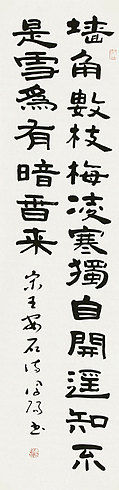 墙角數枝梅凌寒獨自開遥知不
是雪爲有暗香来
宋王安石诗书